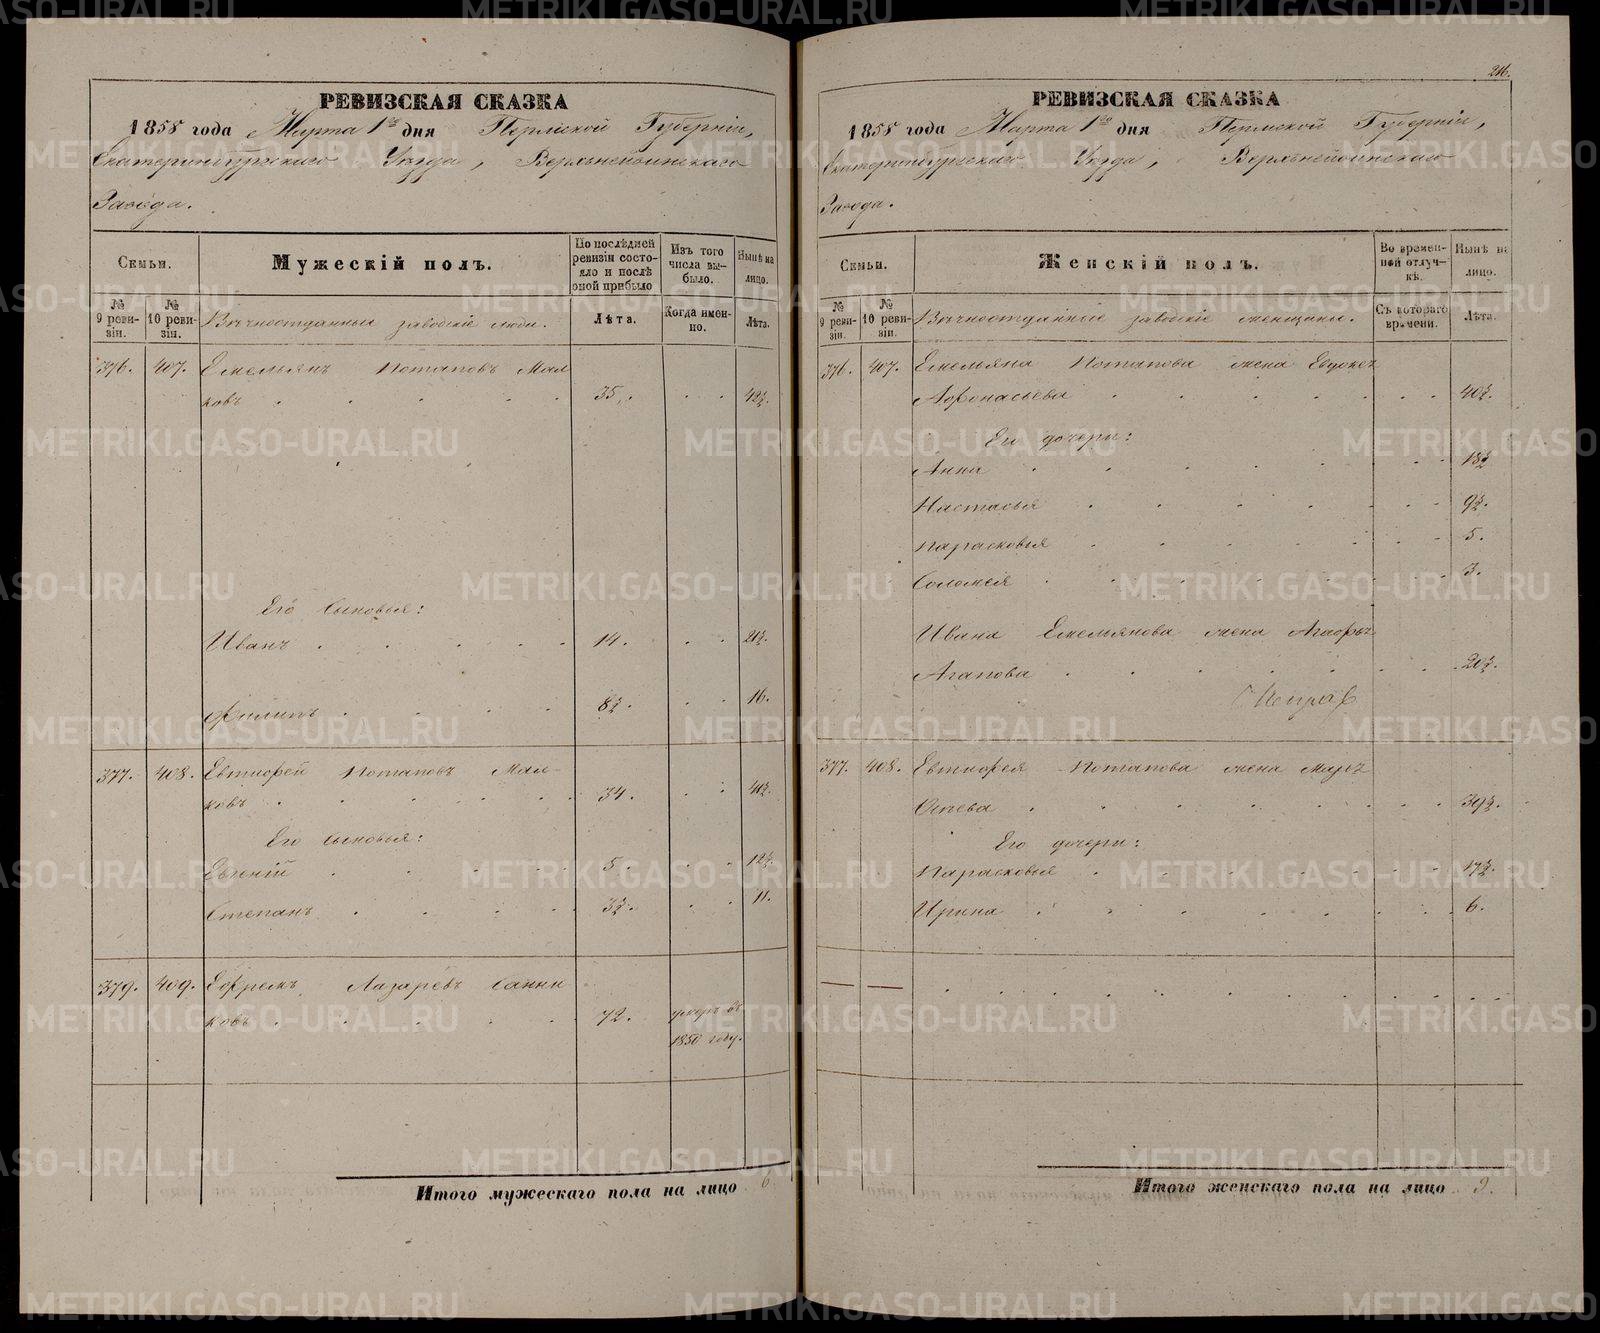 РЕВИЗСКАЯ СКАЗКА
1858 года Марта 1го дня Пермской Губерніи,
Екатеринбургскаго Уѣзда, Верхънейвинскаго
Завода.
Семьи.
Мужескій полъ.
По послѣдней ревизіи состояло и послѣ оной прибыло
Изъ того числа выбыло.
Нынѣ на лицо.
№ 9 ревизіи.
№ 10 ревизіи.
Вѣчноотданныя заводскіе люди.
Лѣта.
Когда именно.
Лѣта.
376. 407. Емельянъ Потаповъ Мал
ковъ 35. 42½.
Его сыновья:
Иванъ 14. 21½.
Филипъ 8½. 16.
377. 408. Евтифей Потаповъ Мал-
ковъ 34. 41½.
Его сыновья:
Евгеній 5. 12½.
Степанъ 3½. 11.
379. 409. Ефремъ Лазаревъ Санни
ковъ 72. умеръ въ
1850 году.
Итого мужескаго пола на лицо 6.
216.
РЕВИЗСКАЯ СКАЗКА
1858 года Марта 1го дня Пермской Губерніи,
Екатеринбургскаго Уѣзда, Верхънейвинскаго
Завода.
Семьи.
Женскій полъ.
Во временной отлучкѣ.
Нынѣ на лицо.
№ 9 ревизіи.
№ 10 ревизіи.
Вѣчноотданныя заводскіе женщины.
Съ котораго времени.
Лѣта.
376. 407. Емельяна Потапова жена Евдокея
Афонасьева 40½.
Его дочери:
Анна 18½
Настасья 9½.
Парасковья 5.
Соломея 3.
Ивана Емельянова жена Агафья
Агапова 20½.
377. 408. Евтифея Потапова жена Марья
Осиева 39½.
Его дочери:
Парасковья 17½.
Ирина 6.
Итого женскаго пола на лицо 9.
METRIKI.GASO-URAL.RU